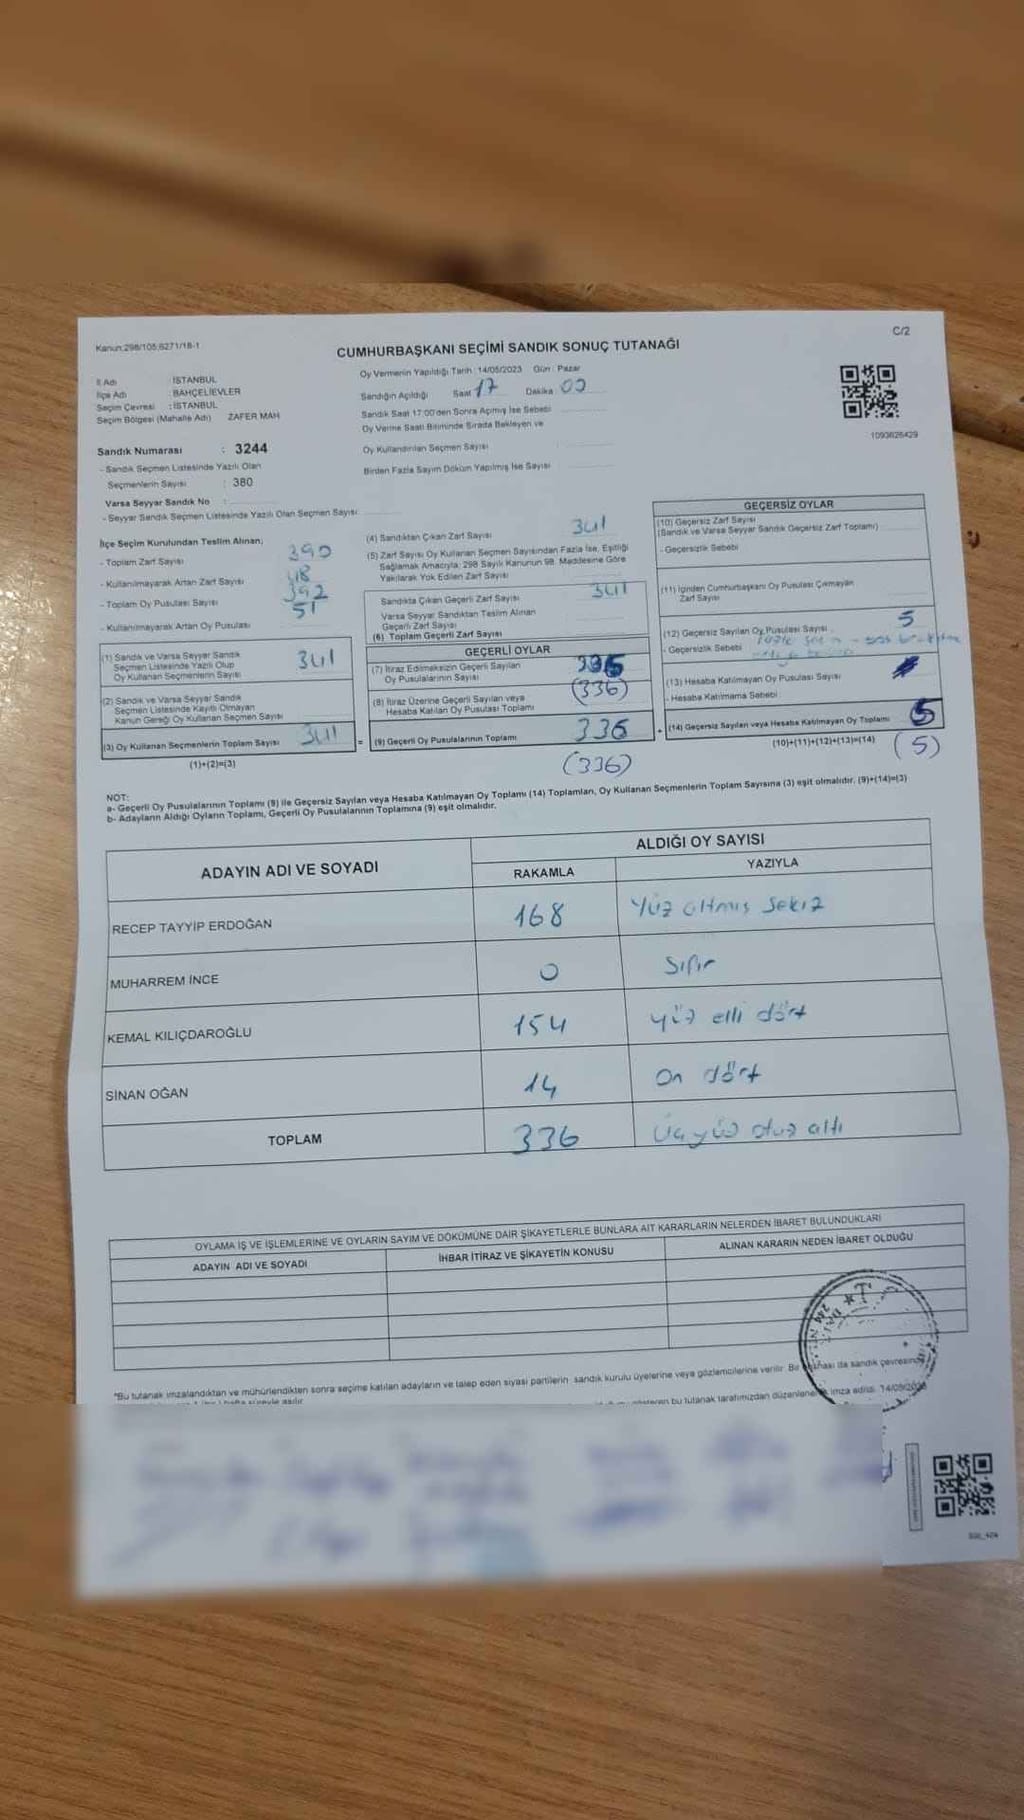 Kanun:298/105;6271/18-1
C/2
CUMHURBAŞKANI SEÇİMİ SANDIK SONUÇ TUTANAĞI
İl Adı : İSTANBUL
İlçe Adı : BAHÇELİEVLER
Seçim Çevresi : İSTANBUL
Seçim Bölgesi (Mahalle Adı) ZAFER MAH
Sandık Numarası : 3244
- Sandık Seçmen Listesinde Yazılı Olan
Seçmenlerin Sayısı : 380
Varsa Seyyar Sandık No :
- Seyyar Sandık Seçmen Listesinde Yazılı Olan Seçmen Sayısı
Oy Vermenin Yapıldığı Tarih : 14/05/2023 Gün : Pazar
Sandığın Açıldığı Saat 17 Dakika 00
Sandık Saat 17:00'den Sonra Açılmış İse Sebebi
Oy Verme Saati Bitiminde Sırada Bekleyen ve
Oy Kullandırılan Seçmen Sayısı :
Birden Fazla Sayım Döküm Yapılmış İse Sayısı
1093626429
İlçe Seçim Kurulundan Teslim Alınan;
- Toplam Zarf Sayısı 390
- Kullanılmayarak Artan Zarf Sayısı 48
- Toplam Oy Pusulası Sayısı 392
- Kullanılmayarak Artan Oy Pusulası 51
(1) Sandık ve Varsa Seyyar Sandık
Seçmen Listesinde Yazılı Olup
Oy Kullanan Seçmenlerin Sayısı 341
(2) Sandık ve Varsa Seyyar Sandık
Seçmen Listesinde Kayıtlı Olmayan
Kanun Gereği Oy Kullanan Seçmen Sayısı
(3) Oy Kullanan Seçmenlerin Toplam Sayısı 341 =
(1)+(2)=(3)
(4) Sandıktan Çıkan Zarf Sayısı 341
(5) Zarf Sayısı Oy Kullanan Seçmen Sayısından Fazla İse, Eşitliği
Sağlamak Amacıyla; 298 Sayılı Kanunun 98. Maddesine Göre
Yakılarak Yok Edilen Zarf Sayısı
Sandıkta Çıkan Geçerli Zarf Sayısı 341
Varsa Seyyar Sandıktan Teslim Alınan
Geçerli Zarf Sayısı
(6) Toplam Geçerli Zarf Sayısı
GEÇERLİ OYLAR
(7) İtiraz Edilmeksizin Geçerli Sayılan
Oy Pusulalarının Sayısı 336
(336)
(8) İtiraz Üzerine Geçerli Sayılan veya
Hesaba Katılan Oy Pusulası Toplamı
(9) Geçerli Oy Pusulalarının Toplamı 336 +
(336)
GEÇERSİZ OYLAR
(10) Geçersiz Zarf Sayısı
(Sandık ve Varsa Seyyar Sandık Geçersiz Zarf Toplamı)
- Geçersizlik Sebebi
(11) İçinden Cumhurbaşkanı Oy Pusulası Çıkmayan
Zarf Sayısı
(12) Geçersiz Sayılan Oy Pusulası Sayısı 5
- Geçersizlik Sebebi
(13) Hesaba Katılmayan Oy Pusulası Sayısı
- Hesaba Katılmama Sebebi
(14) Geçersiz Sayılan veya Hesaba Katılmayan Oy Toplamı 5
(10)+(11)+(12)+(13)=(14) (5)
NOT:
a- Geçerli Oy Pusulalarının Toplamı (9) ile Geçersiz Sayılan veya Hesaba Katılmayan Oy Toplamı (14) Toplamları, Oy Kullanan Seçmenlerin Toplam Sayısına (3) eşit olmalıdır. (9)+(14)=(3)
b- Adayların Aldığı Oyların Toplamı, Geçerli Oy Pusulalarının Toplamına (9) eşit olmalıdır.
ADAYIN ADI VE SOYADI
ALDIĞI OY SAYISI
RAKAMLA YAZIYLA
RECEP TAYYİP ERDOĞAN 168 Yüz altmış sekiz
MUHARREM İNCE 0 Sıfır
KEMAL KILIÇDAROĞLU 154 yüz elli dört
SİNAN OĞAN 14 On dört
TOPLAM 336 Üçyüz otuz altı
OYLAMA İŞ VE İŞLEMLERİNE VE OYLARIN SAYIM VE DÖKÜMÜNE DAİR ŞİKAYETLERLE BUNLARA AİT KARARLARIN NELERDEN İBARET BULUNDUKLARI
ADAYIN ADI VE SOYADI İHBAR İTİRAZ VE ŞİKAYETİN KONUSU ALINAN KARARIN NEDEN İBARET OLDUĞU
*Bu tutanak imzalandıktan ve mühürlendikten sonra seçime katılan adayların ve talep eden siyasi partilerin sandık kurulu üyelerine veya gözlemcilerine verilir. Bir da sandık çevresinde
bu tutanak tarafımızdan düzenlenerek imza edildi.